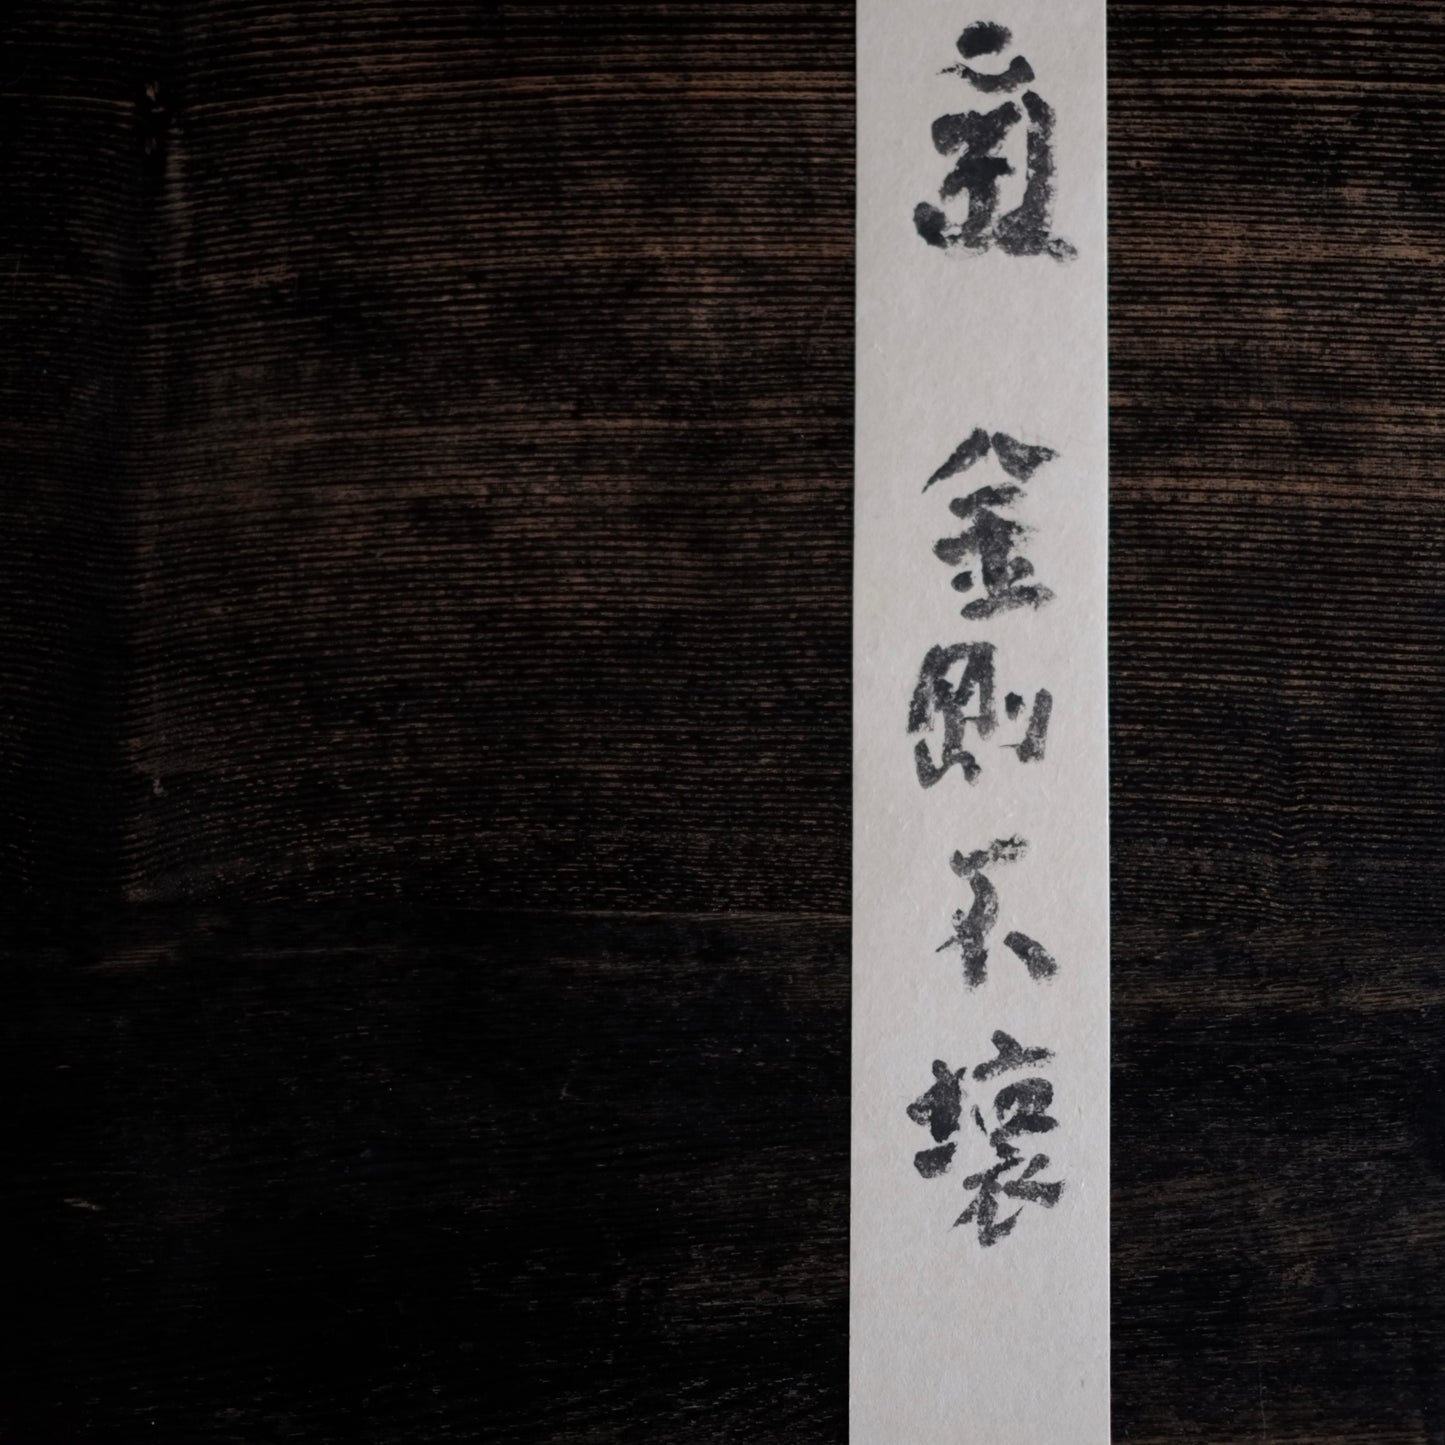 金剛不壊